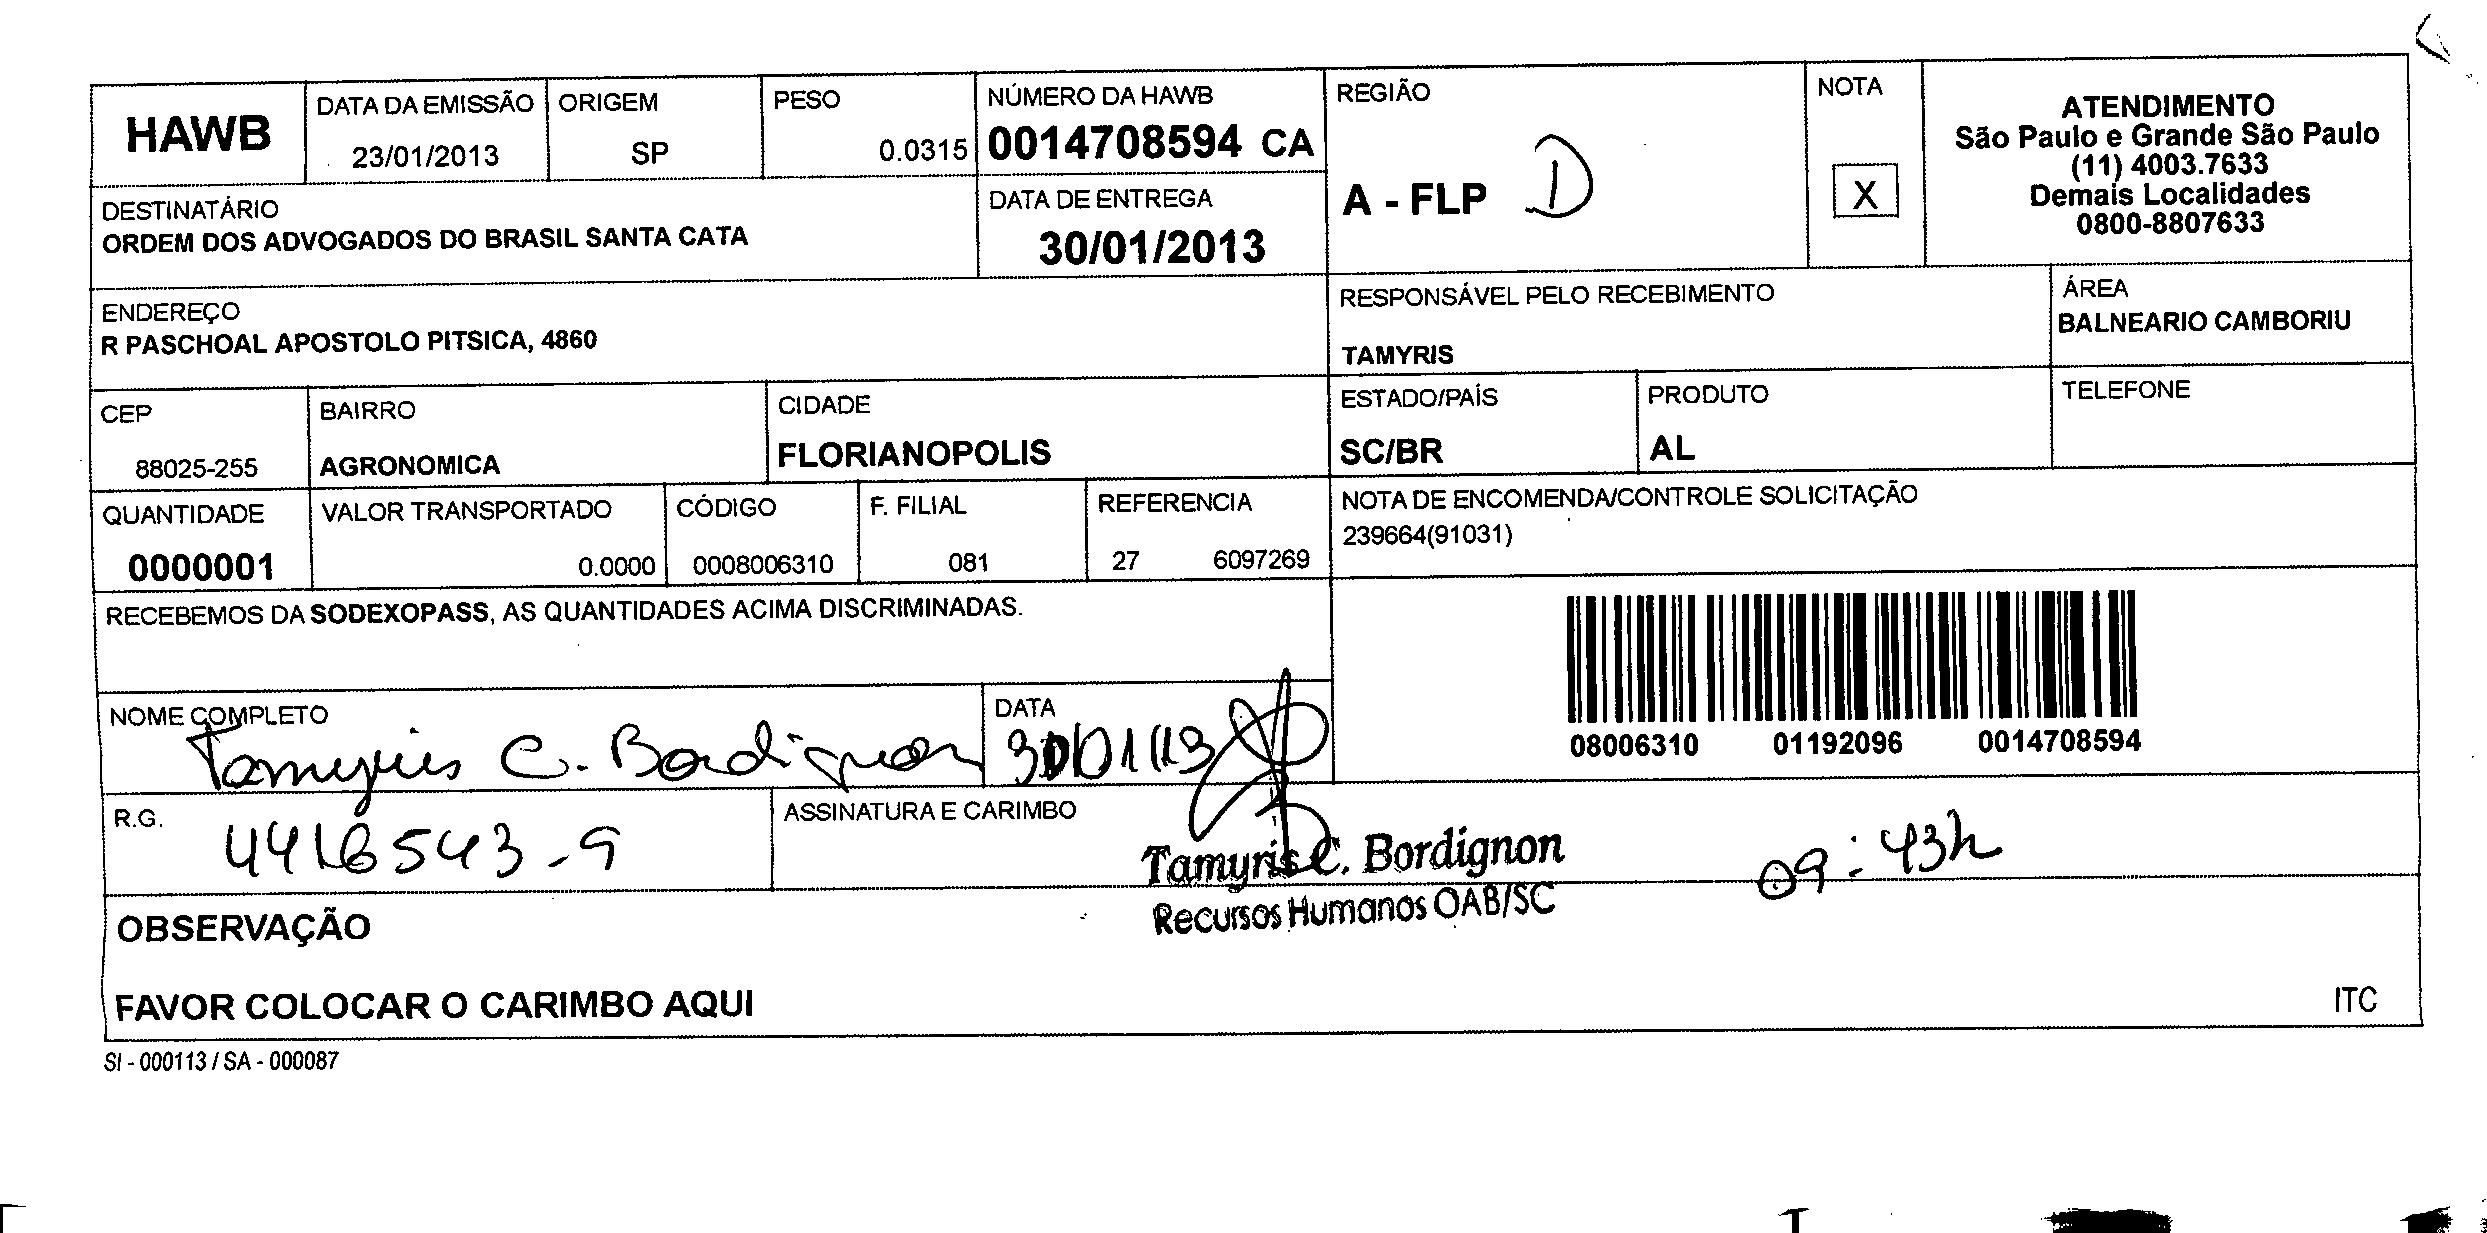 HAWB
DATA DA EMISSÃO
23/01/2013
ORIGEM
SP
PESO
0.0315
NÚMERO DA HAWB
0014708594 CA
REGIÃO
A - FLP D
NOTA
X
ATENDIMENTO
São Paulo e Grande São Paulo
(11) 4003.7633
Demais Localidades
0800-8807633
DESTINATÁRIO
ORDEM DOS ADVOGADOS DO BRASIL SANTA CATA
DATA DE ENTREGA
30/01/2013
ENDEREÇO
R PASCHOAL APOSTOLO PITSICA, 4860
RESPONSÁVEL PELO RECEBIMENTO
TAMYRIS
ÁREA
BALNEARIO CAMBORIU
CEP
88025-255
BAIRRO
AGRONOMICA
CIDADE
FLORIANOPOLIS
ESTADO/PAÍS
SC/BR
PRODUTO
AL
TELEFONE
QUANTIDADE
0000001
VALOR TRANSPORTADO
0.0000
CÓDIGO
0008006310
F. FILIAL
081
REFERENCIA
27 6097269
NOTA DE ENCOMENDA/CONTROLE SOLICITAÇÃO
239664(91031)
RECEBEMOS DA SODEXOPASS, AS QUANTIDADES ACIMA DISCRIMINADAS.
08006310 01192096 0014708594
NOME COMPLETO
Tamyris C. Bordignon
DATA
30/01/13
R.G.
4416543-9
ASSINATURA E CARIMBO
Tamyris C. Bordignon
Recursos Humanos OAB/SC
09:43h
OBSERVAÇÃO
FAVOR COLOCAR O CARIMBO AQUI
ITC
SI - 000113 / SA - 000087